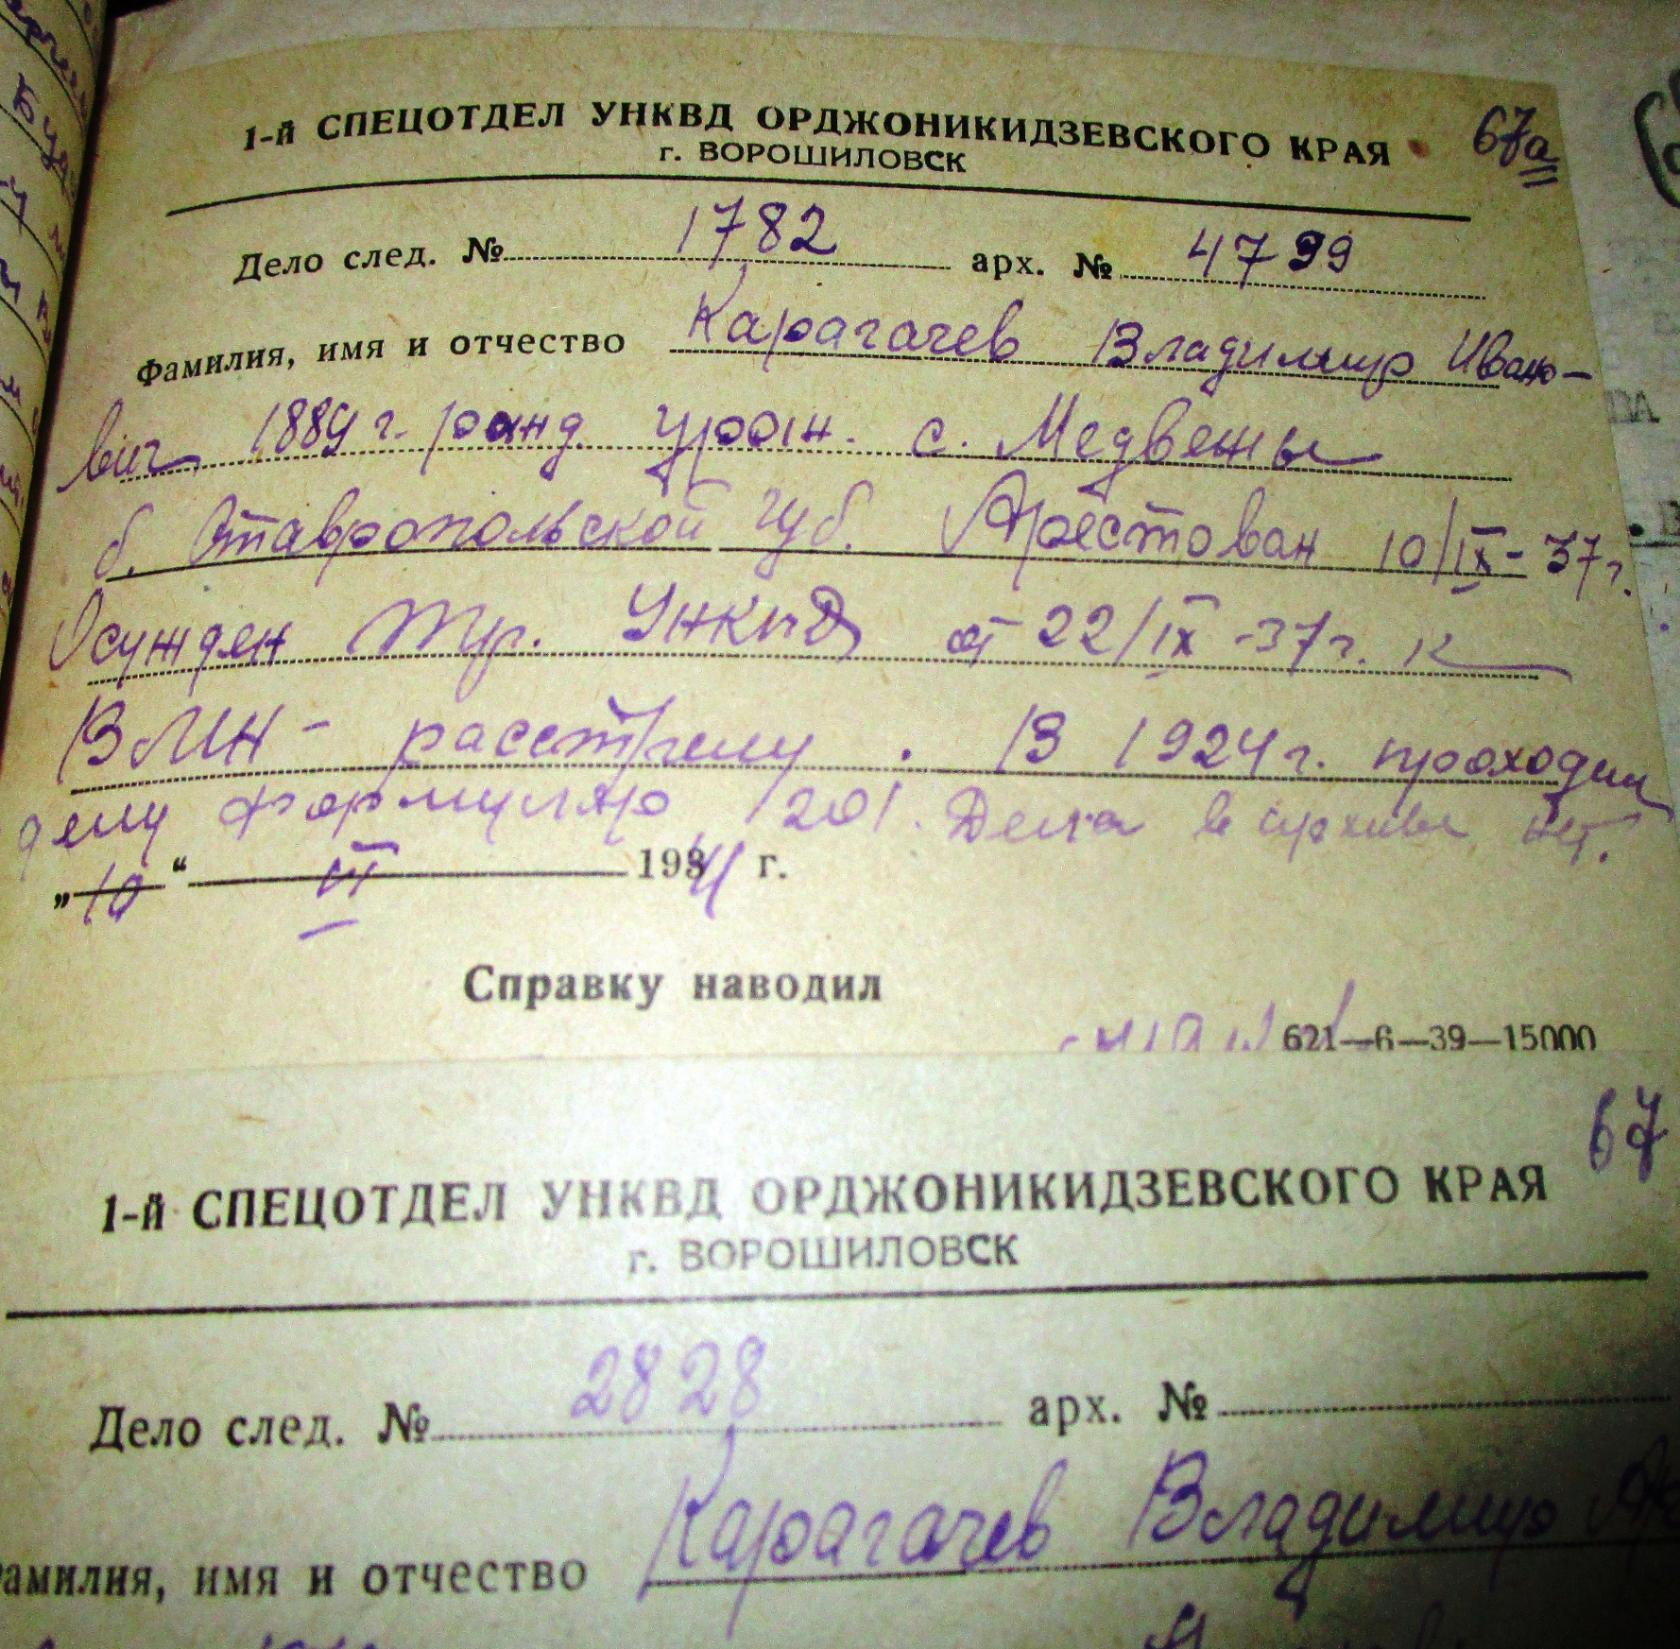 1-й СПЕЦОТДЕЛ УНКВД ОРДЖОНИКИДЗЕВСКОГО КРАЯ 67а
г. ВОРОШИЛОВСК
Дело след. № 1782 арх. № 4799
Фамилия, имя и отчество Карагачев Владимир Ивано-
вич 1889 г. рожд. урож. с. Медвежье
б. Ставропольской губ. Арестован 10/IX-37г.
Осужден Тр. УНКВД от 22/IX-37г. к
ВМН - расстрелу. В 1924 г. проходил
делу формуляр 201. Дела в архиве нет.
„10“ VI 1941 г.
Справку наводил
621—6—39—15000
67
1-й СПЕЦОТДЕЛ УНКВД ОРДЖОНИКИДЗЕВСКОГО КРАЯ
г. ВОРОШИЛОВСК
Дело след. № 2828 арх. №
амилия, имя и отчество Карагачев Владимир